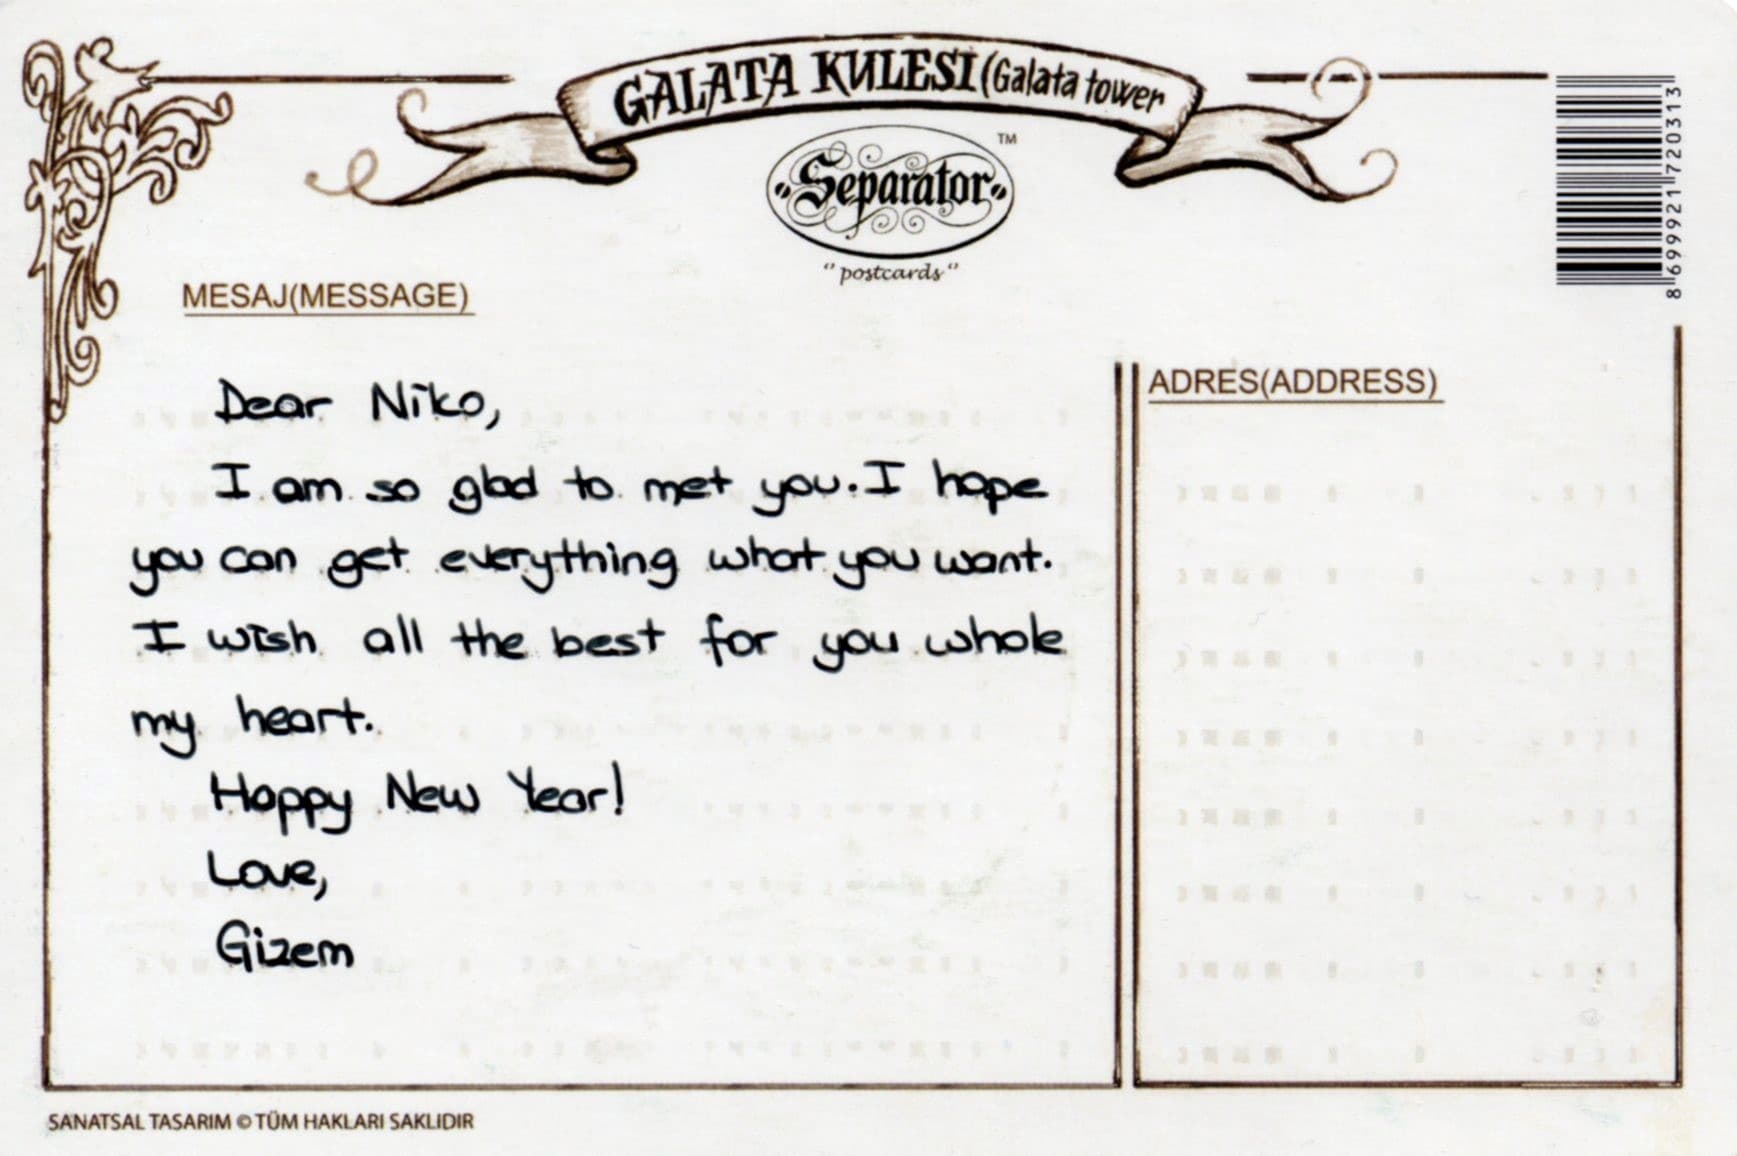 GALATA KULESİ (Galata tower
Separator
TM
"postcards"
8 699921 720313
MESAJ(MESSAGE)
ADRES(ADDRESS)
Dear Niko,
I am so glad to met you. I hope
you can get everything what you want.
I wish all the best for you whole
my heart.
Happy New Year!
Love,
Gizem
SANATSAL TASARIM © TÜM HAKLARI SAKLIDIR